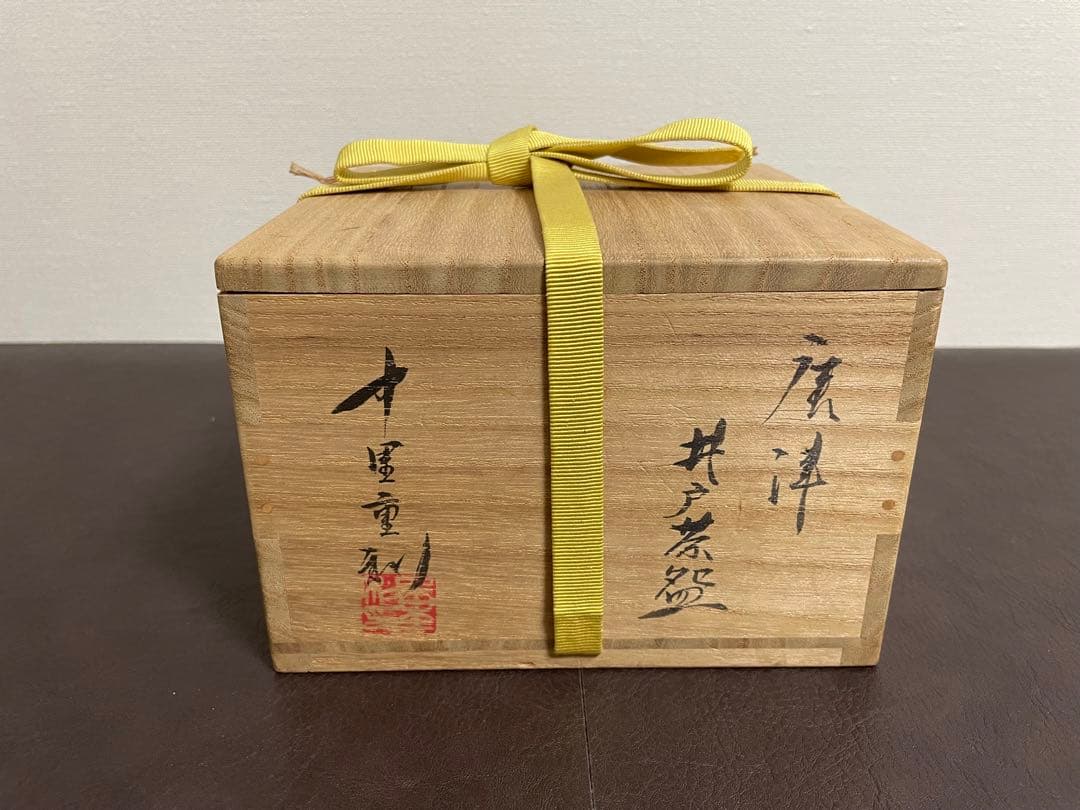 唐津
井戸茶盌
中里重利